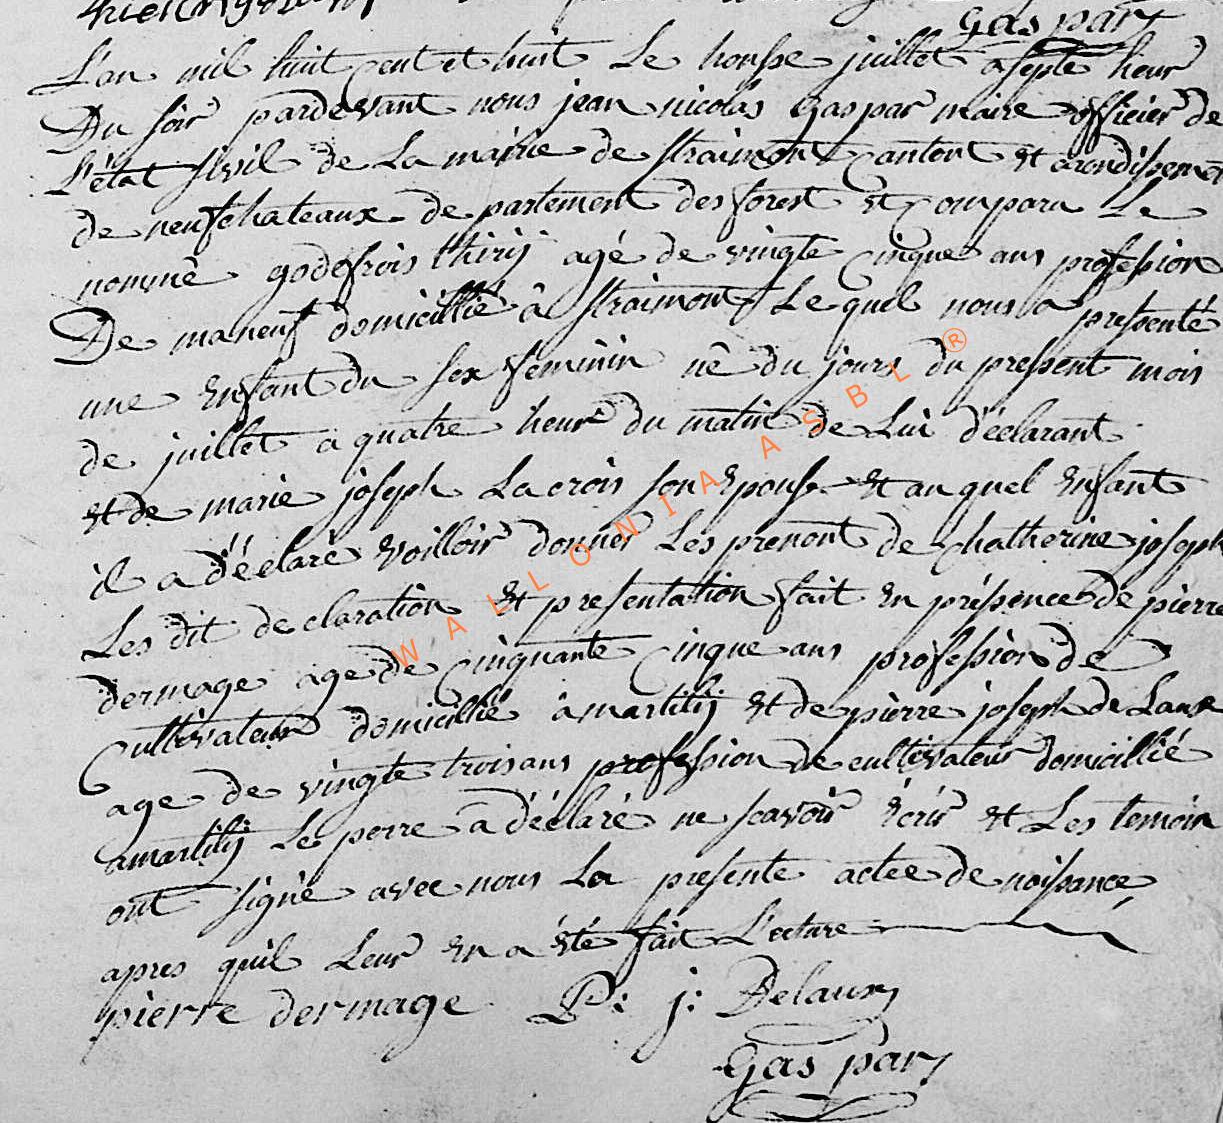 Gaspar
L'an mil huit cent et huit Le honsse juillet a septe heur
Du soir pardevant nous jean nicolas Gaspar maire officier de
L'état sivil de La mairie de straimont canton et arondissement
de neufchateaux de partement des forest et comparu Le
nommé godefrois thirij agé de vingte cinque ans profession
De maneuf domicillié â straimont Lequel nous a pressenté
une enfant du sex feminin né du jours du pressent mois
de juillet a quatre heur du matin de Lui déclarant
et de marie joseph Lacrois son Epouse et auquel enfant
il a déclaré voilloir donner Les prenont de chatherine joseph
Les dit declaration et presentation fait en préssence de pierre
dermage age de cinquante cinque ans profession de
Cultivateur domicillié â martilij et de pierre joseph de Laux
age de vingte trois ans profession de cultivateur domicillié
a martilij Le perre â déclaré ne scavoir écrir et Les temoin
ont signé avec nous La presente actee de noissance,
apres quil Leur en a été fait L'ecture
pierre dermage P: j: Delaux
Gaspar
WALLONIA ASBL ®